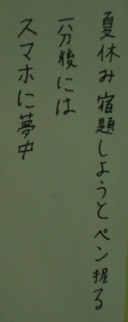 夏休み宿題しようとペン握る
一分後には
スマホに夢中